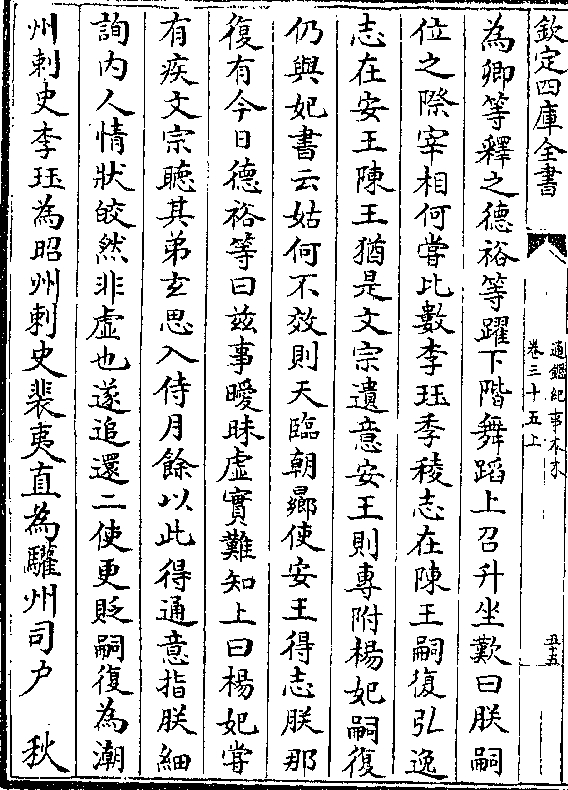 欽定四庫全書
通鑑紀事本末
卷三十五上
五十五
為卿等釋之德裕等躍下階舞蹈上召升坐歎曰朕嗣
位之際宰相何嘗比數李珏季稜志在陳王嗣復弘逸
志在安王陳王猶是文宗遺意安王則專附楊妃嗣復
仍與妃書云姑何不效則天臨朝曏使安王得志朕那
復有今日德裕等曰兹事曖昧虛實難知上曰楊妃嘗
有疾文宗聽其弟玄思入侍月餘以此得通意指朕細
詢内人情狀皎然非虛也遂追還二使更貶嗣復為潮
州刺史李珏為昭州刺史裴夷直為驩州司户　秋